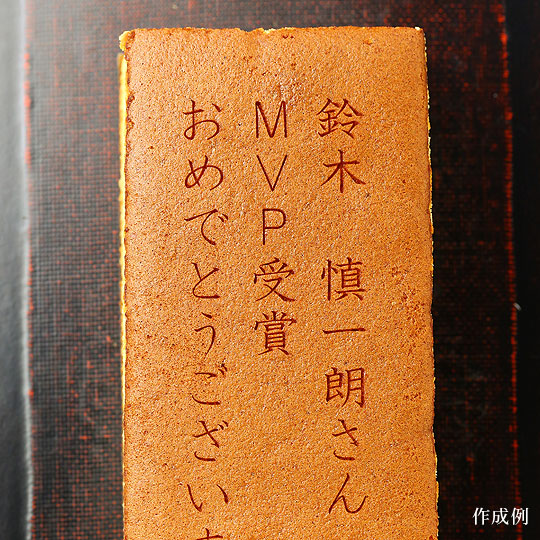 鈴木 慎一朗さん
MVP受賞
おめでとうございま
作成例